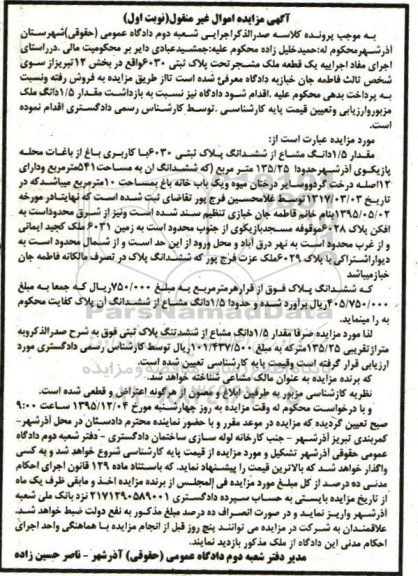 آگهی مزایده اموال غیر منقول(نوبت اول)
به موجب پرونده کلاسه صدرالذکراجرایی شعبه دوم دادگاه عمومی (حقوقی)شهرستان
آذرشهرمحکوم له:حمیدخلیل زاده محکوم علیه:جمشیدعبادی دایر بر محکومیت مالی .درراستای
اجرای مفاد اجراییه یک قطعه ملک مشجرتحت پلاک ثبتی ۶۰۳۰واقع در بخش ۱۲تبریزاز سوی
شخص ثالث فاطمه جان خبازیه دادگاه معرفی شده است تااز طریق مزایده به فروش رفته ونسبت
به پرداخت بدهی محکوم علیه .اقدام شود دادگاه نیز نسبت به بازداشت مقدار ۱/۵دانگ ملک
مزبوروارزیابی وتعیین قیمت پایه کارشناسی .توسط کارشناس رسمی دادگستری اقدام نموده
است.
مورد مزایده عبارت است از:
مقدار ۱/۵دانگ مشاع از ششدانگ پلاک ثبتی ۶۰۳۰با کاربری باغ از باغات محله
بازیکوی آذرشهرحدودا ۱۳۵/۲۵ متر مربع (که ششدانگ ان به مساحت۵۴۱مترمربع ودارای
۱۲اصله درخت گردووسایر درختان میوه ویک باب خانه باغ بمساحت ۱۰مترمربع میباشدکه در
تاریخ ۱۳۱۲/۰۳/۰۳توسط غلامحسین فرج پور تقاضای ثبت شده است که نهایتادر مورخه
۱۳۹۵/۰۵/۰۲بنام خانم فاطمه جان خبازی تنظیم سند شده است ونیز از شرق محدوداست به
افکن پلاک ۶۰۲۸موقوفه مسجدبازیکوی از جنوب محدود است به زمین ۶۰۳۱ ملک کجید ایمانی
و از غرب محدود است به نهر درق آباد و محل ورود از این حد است و از شمال محدود است به
دیواراشتراکی با پلاک ۶۰۲۹ملک عزت فرج پور که ششدانگ پلاک در تصرف مالکانه فاطمه جان
خبازمیباشد
که ششدانگ پلاک فوق از قرارهرمترمربع به مبلغ ۷۵۰/۰۰۰ریال که جمعا به مبلغ
۴۰۵/۷۵۰/۰۰۰ریال برآورد شده و حدودا ۱/۵دانگ مشاع از ششدانگ ان پلاک کفایت محکوم
به را مینماید.
لذا مورد مزایده صرفا مقدار ۱/۵دانگ مشاع از ششدتنگ پلاک ثبتی فوق به شرح صدرالذکروبه
متراژتقریبی ۱۳۵/۲۵مترکه به مبلغ ۱۰۱/۴۳۷/۵۰۰ریال توسط کارشناس رسمی دادگستری مورد
ارزیابی قرار گرفته است وقیمت پایه کارشناسی تعیین شده است.
که برنده مزایده به عنوان مالک مشاعی شناخته خواهد شد.
نظریه کارشناسی مزبور به طرفین ابلاغ و مصون از هرگونه اعتراض و قطعی شده است.
و با درخواست محکوم له وقت مزایده به روز چهارشنبه مورخ ۱۳۹۵/۱۲/۰۴ ساعت ۹:۰۰
صبح تعیین گردیده که مزایده در موعد مقرر و با حضور نماینده محترم دادستان در محل آذرشهر-
کمربندی تبریز آذرشهر – جنب کارخانه لوله سازی ساختمان دادگستری - دفتر شعبه دوم دادگاه
عمومی حقوقی آذرشهر تشکیل و مورد مزایده از قیمت پایه کارشناسی شروع خواهد شد و به کسی
واگذار خواهد شد که بالاترین قیمت را پیشنهاد نماید. که باستناد ماده ۱۲۹ قانون اجرای احکام
مدنی ده درصد از کل مبلغ مورد مزایده فی المجلس از برنده مزایده اخذ و مابقی ظرف یک ماه
از تاریخ مزایده بایستی به حساب سپرده دادگستری ۲۱۷۱۲۹۰۵۸۹۰۰۱ نزد بانک ملی شعبه
آذرشهر واریز نماید و در صورت انصراف ده درصد مبلغ مذکور به نفع دولت ضبط خواهد شد.
علاقمندان به شرکت در مزایده می توانند پنج روز قبل از انجام مزایده با هماهنگی واحد اجرای
احکام مدنی این دادگاه از ملک مذکور بازدید نمایند.
مدیر دفتر شعبه دوم دادگاه عمومی (حقوقی) آذرشهر- ناصر حسین زاده